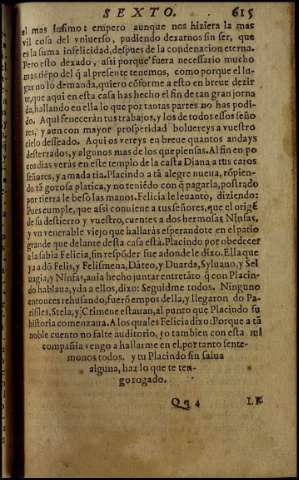 SEXTO. 615
el mas ínfimo: empero aunque nos hiziera la mas
vil cosa del vniuerso, pudiendo dexarnos sin ser, que
es la suma infelicidad, despues de la condenacion eterna.
Pero esto dexado, assi porque fuera necessario mucho
mas tiẽpo del q̃ al presente tenemos, como porque el lu
gar no lo demanda, quiero cõforme a esto en breue dezir
te, que aqui en esta casa has hecho el fin de tan gran jorna
da, hallando en ella lo que por tantas partes no has podi-
do. Aqui fenecerán tus trabajos, y los de todos essos seño
res, y aun con mayor prosperidad boluereys a vuestro
cielo desseado. Aqui os vereys en breue quantos andays
desterrados, y algunos mas de los que piensas. Al fin en po
cos dias veras en este templo de la casta Diana a tus caros
señores, y amada tia. Placindo a tã alegre nueua, rõpien-
do tã gozosa platica, y no teniẽdo con q̃ pagarla, postrado
por tierra le besó las manos. Felicia le leuantó, diziendo:
Pues cumple, que assi conuiene a tus señores, que el origẽ
de su destierro y vuestro, cuentes a dos hermosas Ninfas,
y vn venerable viejo que hallarás esperandote en el patio
grande que delante desta casa está. Placindo por obedecer
a la sabia Felicia, sin respõder fue adonde le dixo. Ella que
ya a dõ Felis, y Felismena, Dãteo, y Duarda, Syluano, y Sel
uagia, y Ninfas, auia hecho juntar entretãto q̃ con Placin-
do hablaua, vda a ellos, dixo: Seguidme todos. Ninguno
entonces rehusando, fuerõ empos della, y llegaron do Pa-
risiles, Stela, y Crimene estauan, al punto que Placindo su
historia començaua. A los quales Felicia dixo: Porque a tã
noble cuento no falte auditorio, yo tambien con esta mi
compañia vengo a hallarme en el, por tanto sente-
monos todos. y tu Placindo sin salua
alguna, haz lo que te ten-
go rogado.
Qq 4